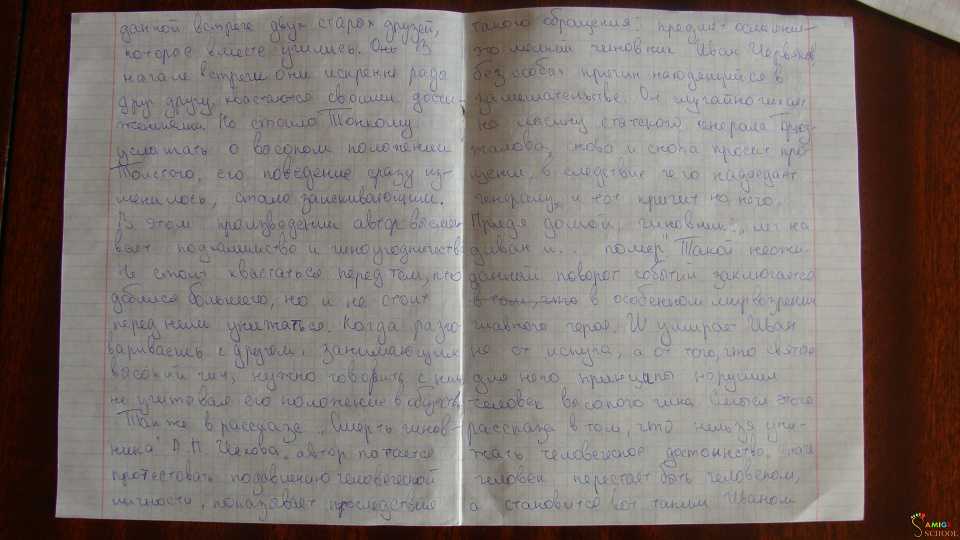 данной встрече двух старох друзей,
которое вместе учились. Оно В
начале встречи они искренне рада
друг другу, хвастаются своими дости-
жениями. Но стоило Тонкому
услышать о высоком положении
Толстого, его поведение сразу из-
менилось, стало заискивающим.
В этом произведении автор высмеи-
вает подхалимство и чиноугодничество
Не стоит хвастаться перед тем, кто
добился большего, но и не стоит
перед ним унижаться. Когда разго-
вариваешь с другом, занимающим
высокий чин, нужно говорить с ним
не учитывая его положение в обществе
Также в рассказе „Смерть чинов-
ника" А.П. Чехова автор пытается
протестовать подавлению человеческой
личности, показывает последствие
такого обращения: предмет осмеяния-
это мелкий чиновник Иван Червяков,
без особых причин находящийся в
замешательстве. Он случайно чихает
на лысину статского генерала Бриз-
жалова, снова и снова просит про-
щения, в следствие чего надоедает
генералу, и тот кричит на него.
Придя домой, чиновник: „лег на
диван и... помер" Такой неожи-
данный поворот событий заключается
в том, что в особенном мировозрении
главного героя. И умирает Иван
не от испуга, а от того, что святые
для него принципы нарушил
человек высокого чина Смысл этого
рассказа в том, что нельзя уни-
жать человеческое достоинство.
человек перестаёт быть человеком,
а становится вот таким Иваном
5 AMIGO
SCHOOL